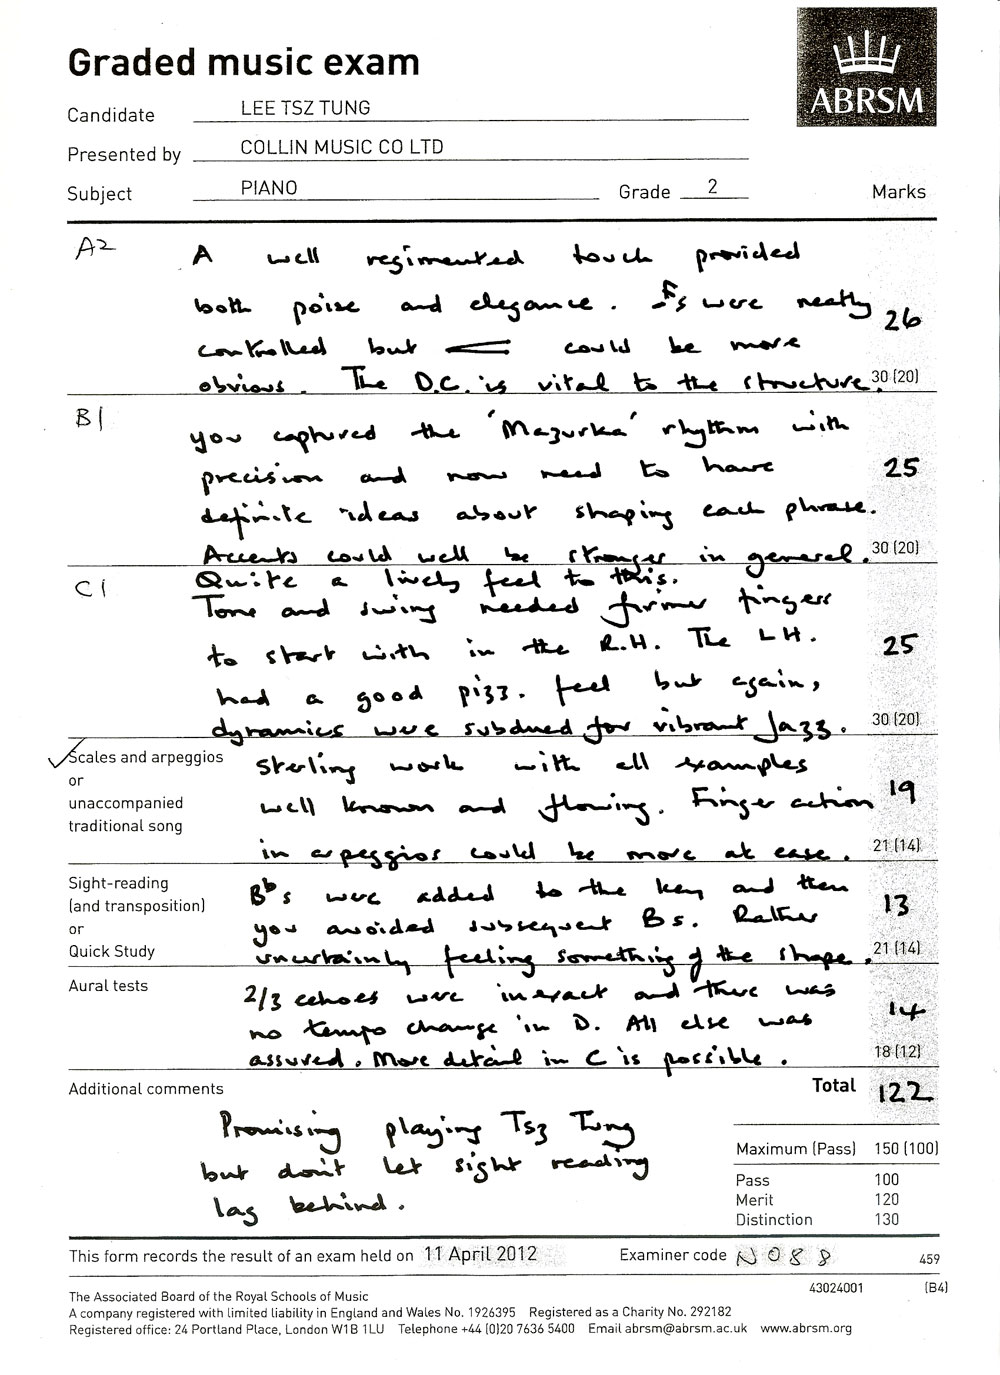 Graded music exam
ABRSM
Candidate LEE TSZ TUNG
Presented by COLLIN MUSIC CO LTD
Subject PIANO Grade 2 Marks
A2 A well regimented touch provided
both poise and elegance. Fs were neatly 26
controlled but < could be more
obvious. The D.C. is vital to the structure. 30 (20)
B1 you captured the 'Mazurka' rhythm with
precision and now need to have 25
definite ideas about shaping each phrase.
Accents could well be stronger in general. 30 (20)
C1 Quite a lively feel to this.
Tone and swing needed firmer fingers
to start with in the R.H. The LH. 25
had a good pizz. feel but again,
dynamics were subdued for vibrant Jazz. 30 (20)
✓ Scales and arpeggios Sterling work with all examples
or
unaccompanied well known and flowing. Finger action 19
traditional song
in arpeggios could be more at ease. 21 (14)
Sight-reading B♭s were added to the key and then
(and transposition) 13
or you avoided subsequent Bs. Rather
Quick Study uncertainly feeling something of the shape. 21 (14)
Aural tests 2/3 echoes were inexact and there was
no tempo change in D. All else was 14
assured. More detail in C is possible. 18 (12)
Additional comments Total 122
Promising playing Tsz Tung
but don't let sight reading
lag behind.
Maximum (Pass) 150 (100)
Pass 100
Merit 120
Distinction 130
This form records the result of an exam held on 11 April 2012 Examiner code N088 459
43024001 (B4)
The Associated Board of the Royal Schools of Music
A company registered with limited liability in England and Wales No. 1926395 Registered as a Charity No. 292182
Registered office: 24 Portland Place, London W1B 1LU Telephone +44 (0)20 7636 5400 Email abrsm@abrsm.ac.uk www.abrsm.org